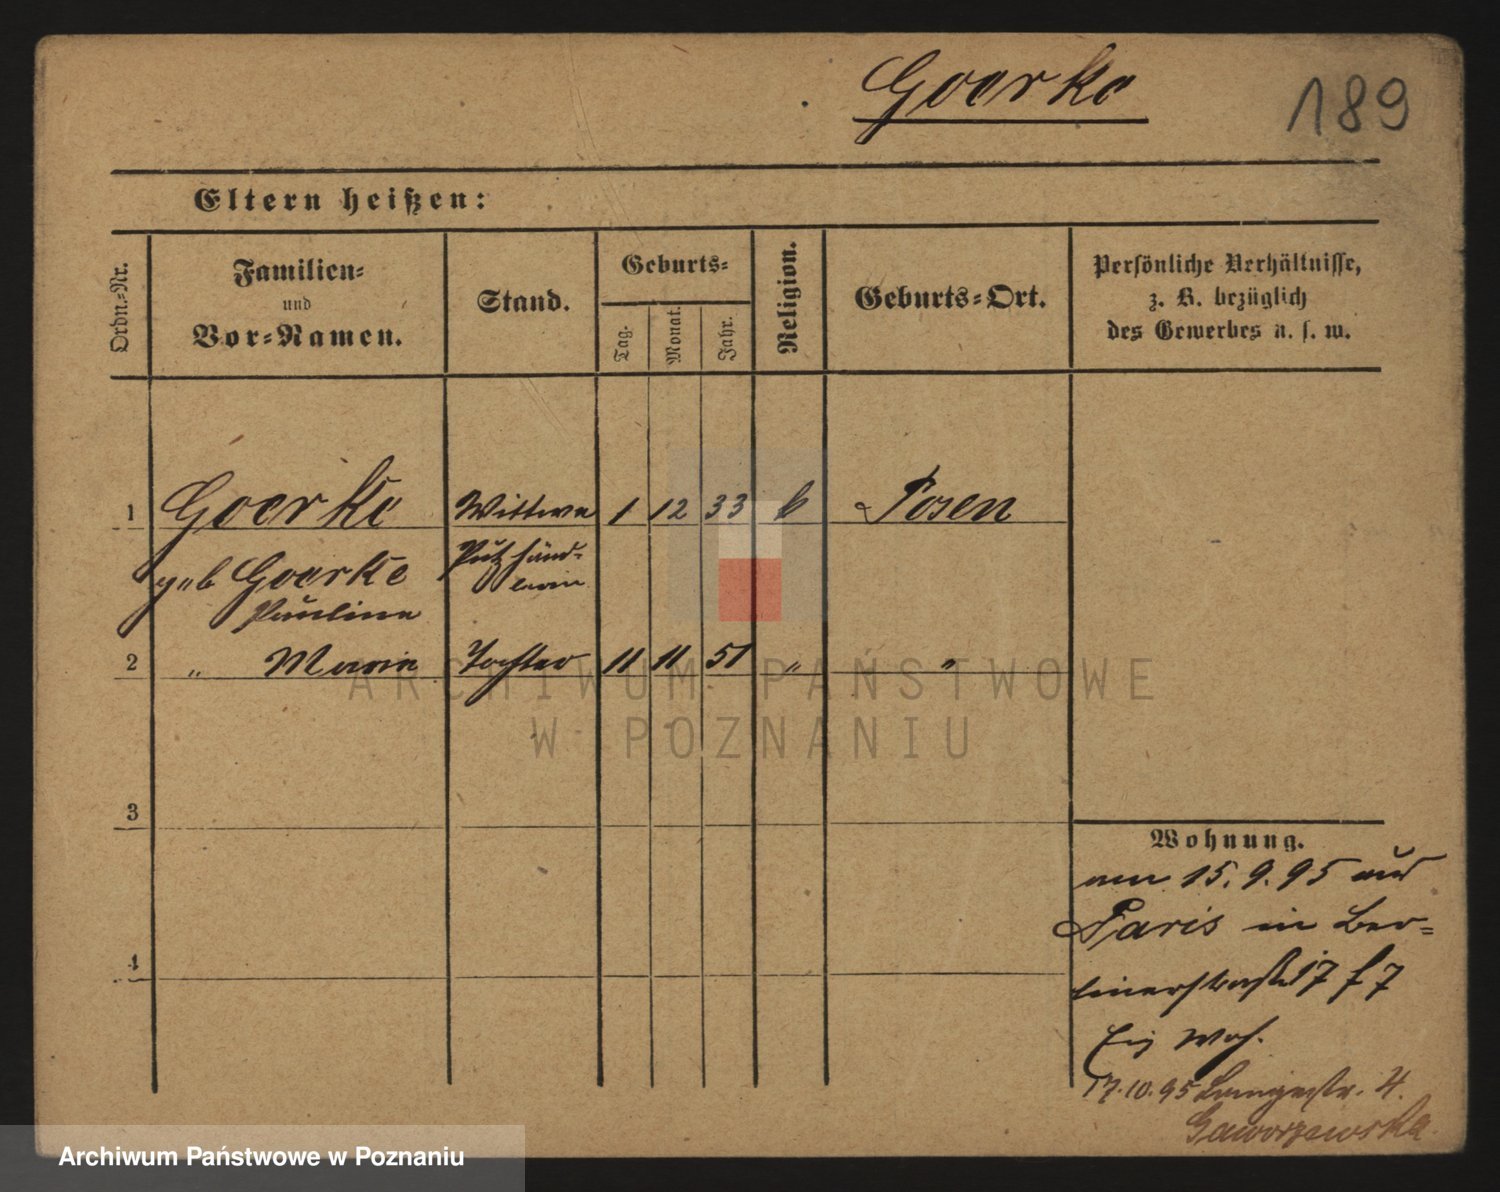 Goerke
189
Eltern heißen:
Ordn.-Nr.
Familien-
und
Vor-Namen.
Stand.
Geburts-
Tag.
Monat.
Jahr.
Religion.
Geburts-Ort.
Persönliche Verhältnisse,
z. B. bezüglich
des Gewerbes u. s. w.
1 Goerke Wittwe 1 12 33 k Posen
geb Goerke Putzhänd-
Pauline lerin
2 " Marie Tochter 11 11 51 " "
3
4
Wohnung.
am 15.9.95 aus
Paris in Ber-
linerstraße 17 f 7
Eig Woh.
17.10.95 Langestr. 4.
Gaworzewska
ARCHIWUM PAŃSTWOWE
W POZNANIU
Archiwum Państwowe w Poznaniu